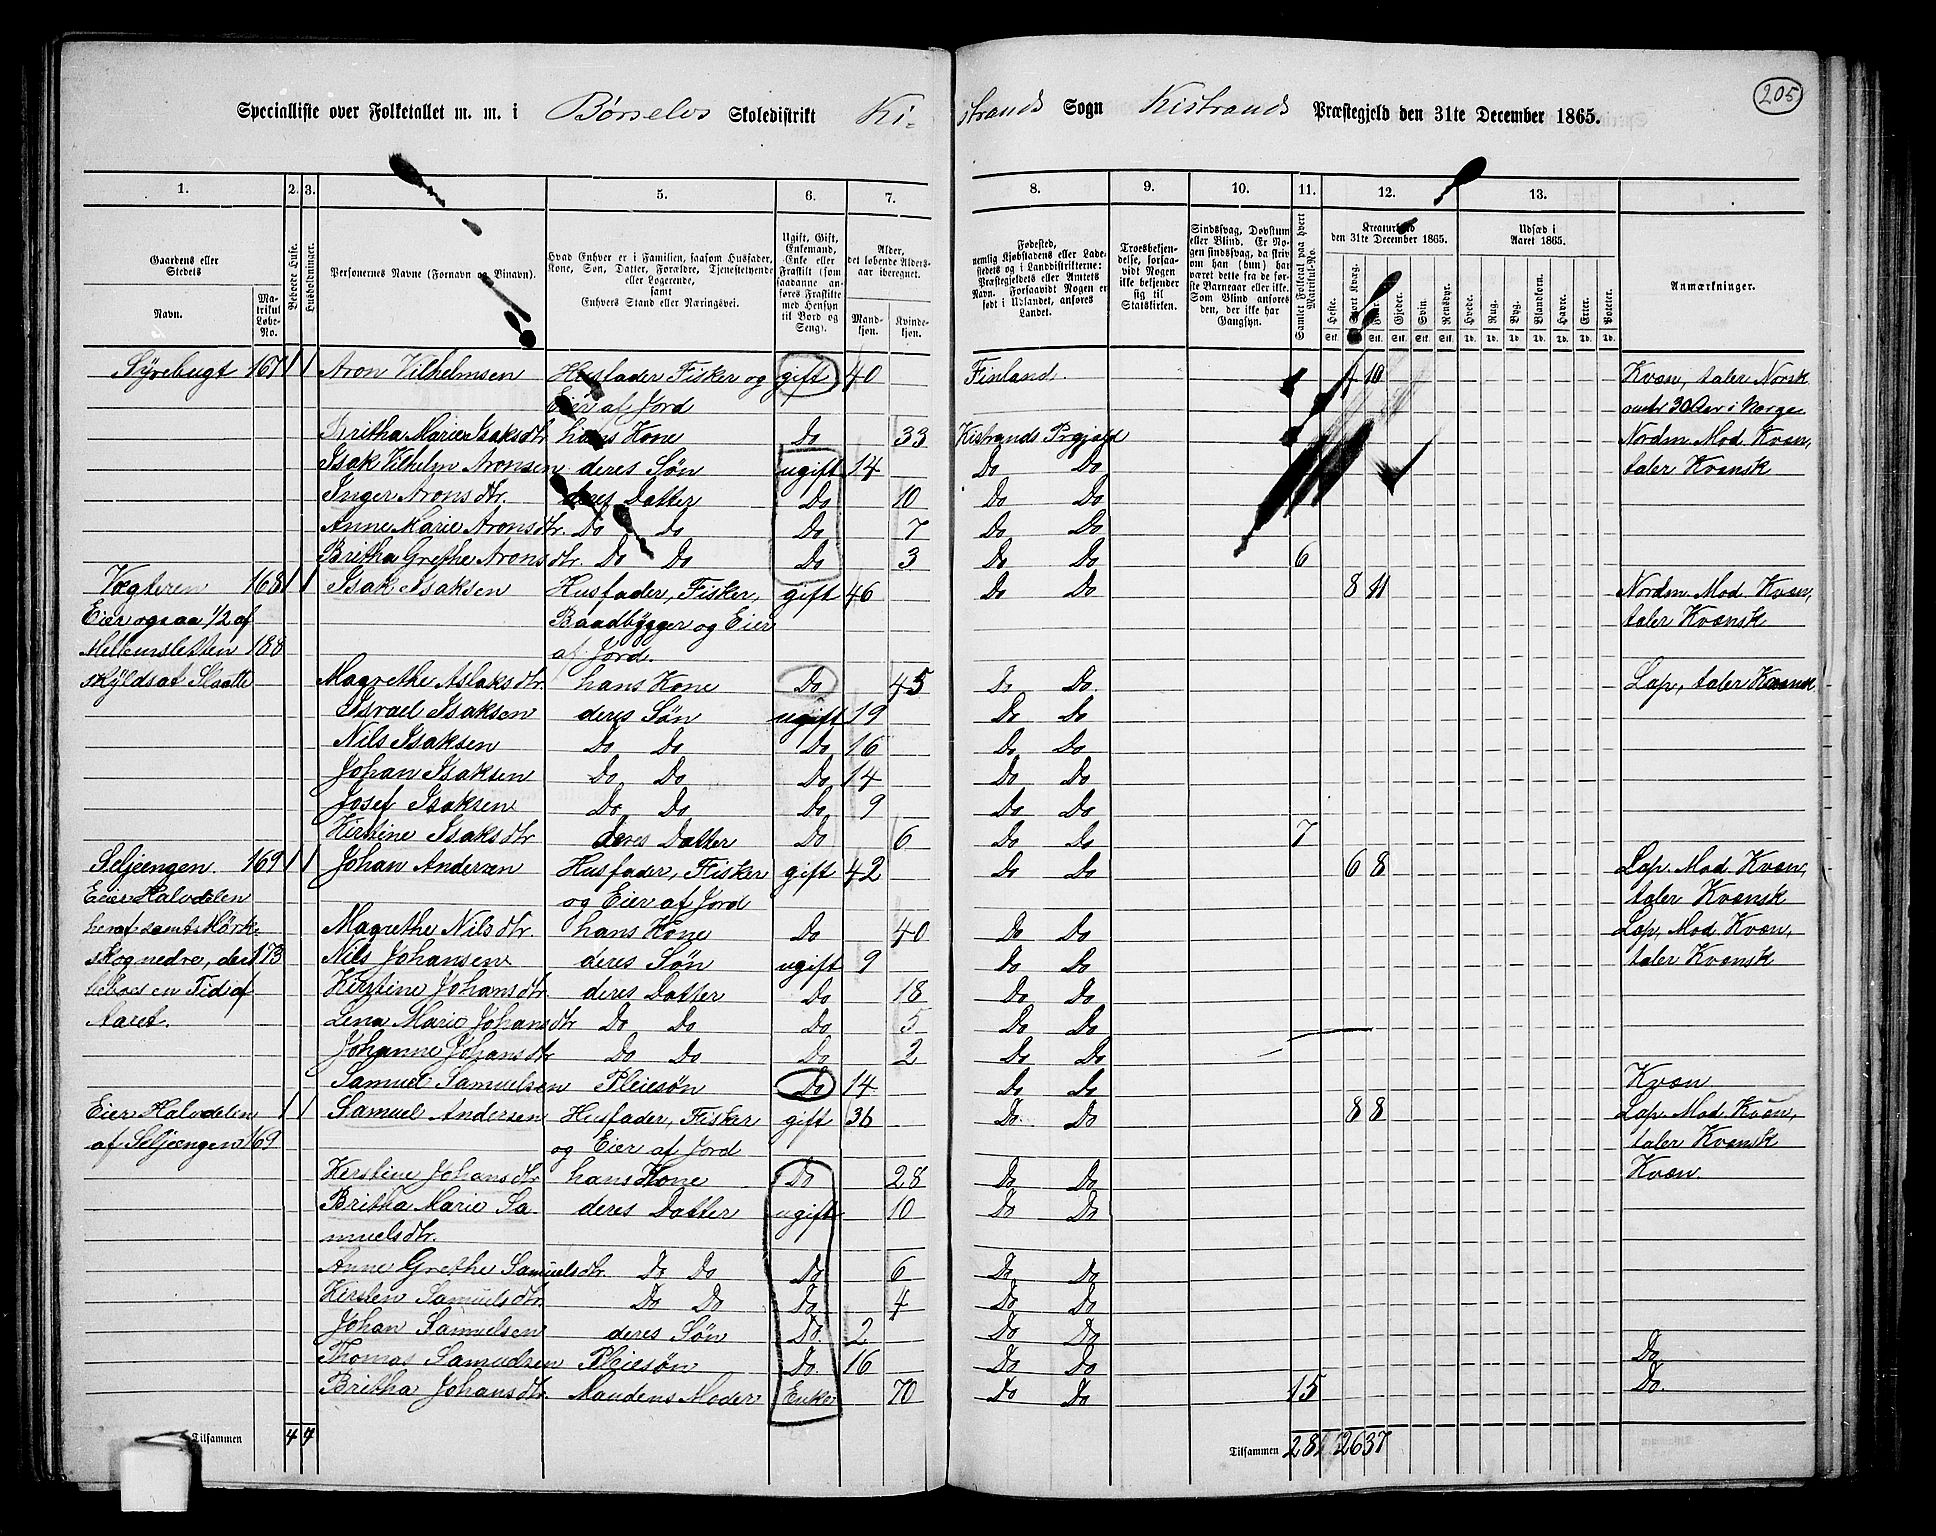 205
Specialliste over Folketallet m. m. i Børselvs Skoledistrikt Ki-
strands Sogn Kistrands Præstegjeld den 31te December 1865.
1. 2. 3. 5. 6. 7. 8. 9. 10. 11. 12. 13.
Gaardens eller Stedets
Navn.
Matrikul Løbe-No.
Beboede Huse.
Husholdninger.
Personernes Navne (Fornavn og Binavn).
Hvad Enhver er i Familien, saasom Husfader, Kone, Søn, Datter, Forældre, Tjenestetyende eller Logerende, samt Enhvers Stand eller Næringsvei.
Ugift, Gift, Enkemand, Enke eller Fraskilt (som saadanne anføres Fraskilte med Hensyn til Bord og Seng).
Alder, det løbende Aldersaar iberegnet.
Mandkjøn.
Kvindekjøn.
Fødested, nemlig Kjøbstadens eller Ladestedets og i Landdistrikterne: Præstegjeldets eller Amtets Navn. Forsaavidt Nogen er født i Udlandet, anføres Landet.
Troesbekjendelse, forsaavidt Nogen ikke bekjender sig til Statskirken.
Sindssvag, Døvstum eller Blind. Er Nogen sindssvag, da skriv om han (hun) har været dette fra de første Barneaar eller ikke. Som Blind anføres den, der ikke har Gangsyn.
Samlet Folketal paa hvert Matrikul-No.
Kreaturhold den 31te December 1865.
Heste. Stort Kvæg. Faar. Gjeder. Svin. Rensdyr.
Stk. Stk. Stk. Stk. Stk.
Udsæd i Aaret 1865.
Hvede. Rug. Byg. Blandkorn. Havre. Erter. Poteter.
Td. Td. Td. Td. Td. Td. Td.
Anmærkninger.
Syrebugt 167 1 1 Aron Vilhelmsen Husfader Fisker og gift 40 Finland. 4 10 Kvæn, taler Norsk
Eier af Jord
Britha Marie Isaksdtr. hans Kone Do 33 Kistrands Prgjeld Nordm. Mod. Kvæn,
Isak Vilhelm Aronsen deres Søn ugift 14 Do Do taler Kvænsk
Inger Aronsdtr. deres Datter Do 10 Do Do
Anne Marie Aronsdtr. Do Do Do 7 Do Do
Britha Grethe Aronsdtr. Do Do Do 3 Do Do 6
Vægteren 168 1 1 Isak Isaksen Husfader, Fisker, gift 46 Do Do 8 11 Nordm. Mod. Kvæn,
Eier ogsaa 1/2 af Baadbygger og Eier taler Kvænsk
Mellemsletten 188 af Jord.
skyldsat Slaatte Magrethe Aslaksdtr. hans Kone Do 45 Do Do Lap, taler Kvænsk
Israel Isaksen deres Søn ugift 19 Do Do
Nils Isaksen Do Do Do 16 Do Do
Johan Isaksen Do Do Do 14 Do Do
Josef Isaksen Do Do Do 9 Do Do
Kirstine Isaksdtr. deres Datter Do 6 Do Do 7
Seljeengen. 169 1 1 Johan Andersen Husfader, Fisker gift 42 Do Do 6 8 Lap. Mod. Kvæn,
Eier Halvdelen og Eier af Jord taler Kvænsk
heraf samt Mørk- Magrethe Nilsdtr. hans Kone Do 40 Do Do Lap, Mod. Kvæn,
skognedre, der 173 Nils Johansen deres Søn ugift 9 Do Do taler Kvænsk
beboes en Tid af Kirstine Johansdtr. deres Datter Do 18 Do Do
Aaret. Lena Marie Johansdtr Do Do Do 5 Do Do
Johanne Johansdtr Do Do Do 2 Do Do
Samuel Samuelsen Pleiesøn Do 14 Do Do Kvæn
Eier Halvdelen 1 1 Samuel Andersen Husfader, Fisker gift 36 Do Do 8 8 Lap Mod. Kvæn,
af Seljeengen 169 og Eier af Jord taler Kvænsk
Kirstine Johansdtr. hans Kone Do 28 Do Do Kvæn.
Britha Marie Sa- deres Datter ugift 10 Do Do
muelsdtr.
Anne Grethe Samuelsdtr. Do Do Do 6 Do Do
Kirsten Samuelsdtr. Do Do Do 4 Do Do
Johan Samuelsen deres Søn Do 2 Do Do
Thomas Samuelsen Pleiesøn Do. 16 Do Do Do
Britha Johansdtr. Mandens Moder Enke 70 Do Do 15 Do.
Tilsammen 4 4 Tilsammen 28 26 37